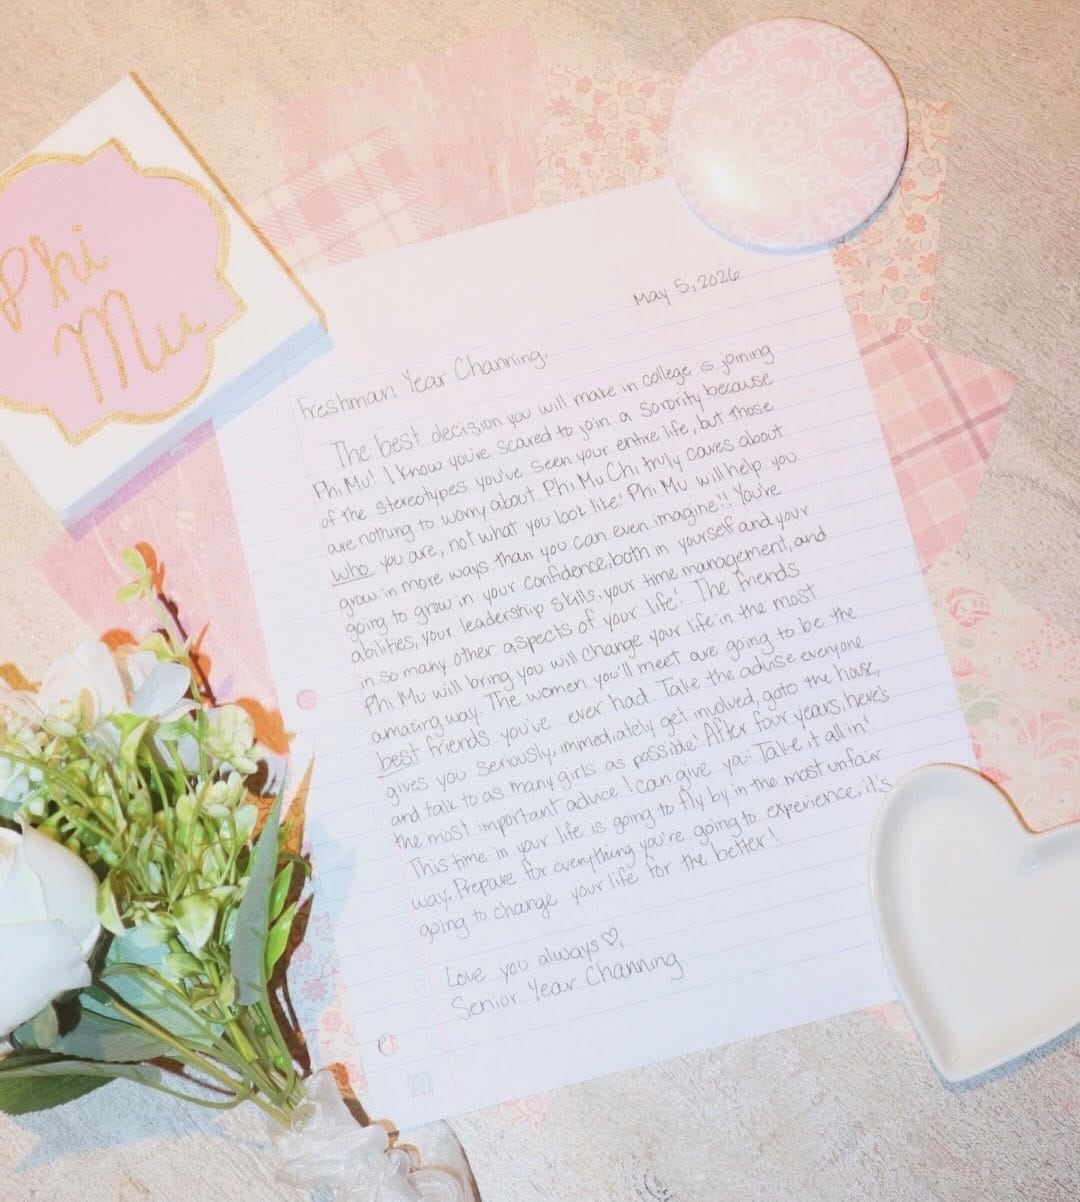 Phi
Mu
ΦM
ΦM
May 5, 2026
Freshman Year Channing,
The best decision you will make in college is joining
Phi Mu! I know you're scared to join a sorority because
of the stereotypes you've seen your entire life, but those
are nothing to worry about. Phi Mu Chi truly cares about
who you are, not what you look like! Phi Mu will help you
grow in more ways than you can even imagine!! You're
going to grow in your confidence, both in yourself and your
abilities, your leadership skills, your time management, and
in so many other aspects of your life! The friends
Phi Mu will bring you will change your life in the most
amazing way. The women you'll meet are going to be the
best friends you've ever had. Take the advise everyone
gives you seriously, immediately get involved, go to the house,
and talk to as many girls as possible! After four years, here's
the most important advice I can give you: Take it all in!
This time in your life is going to fly by in the most unfair
way. Prepare for everything you're going to experience, it's
going to change your life for the better!
Love you always ♡,
Senior Year Channing